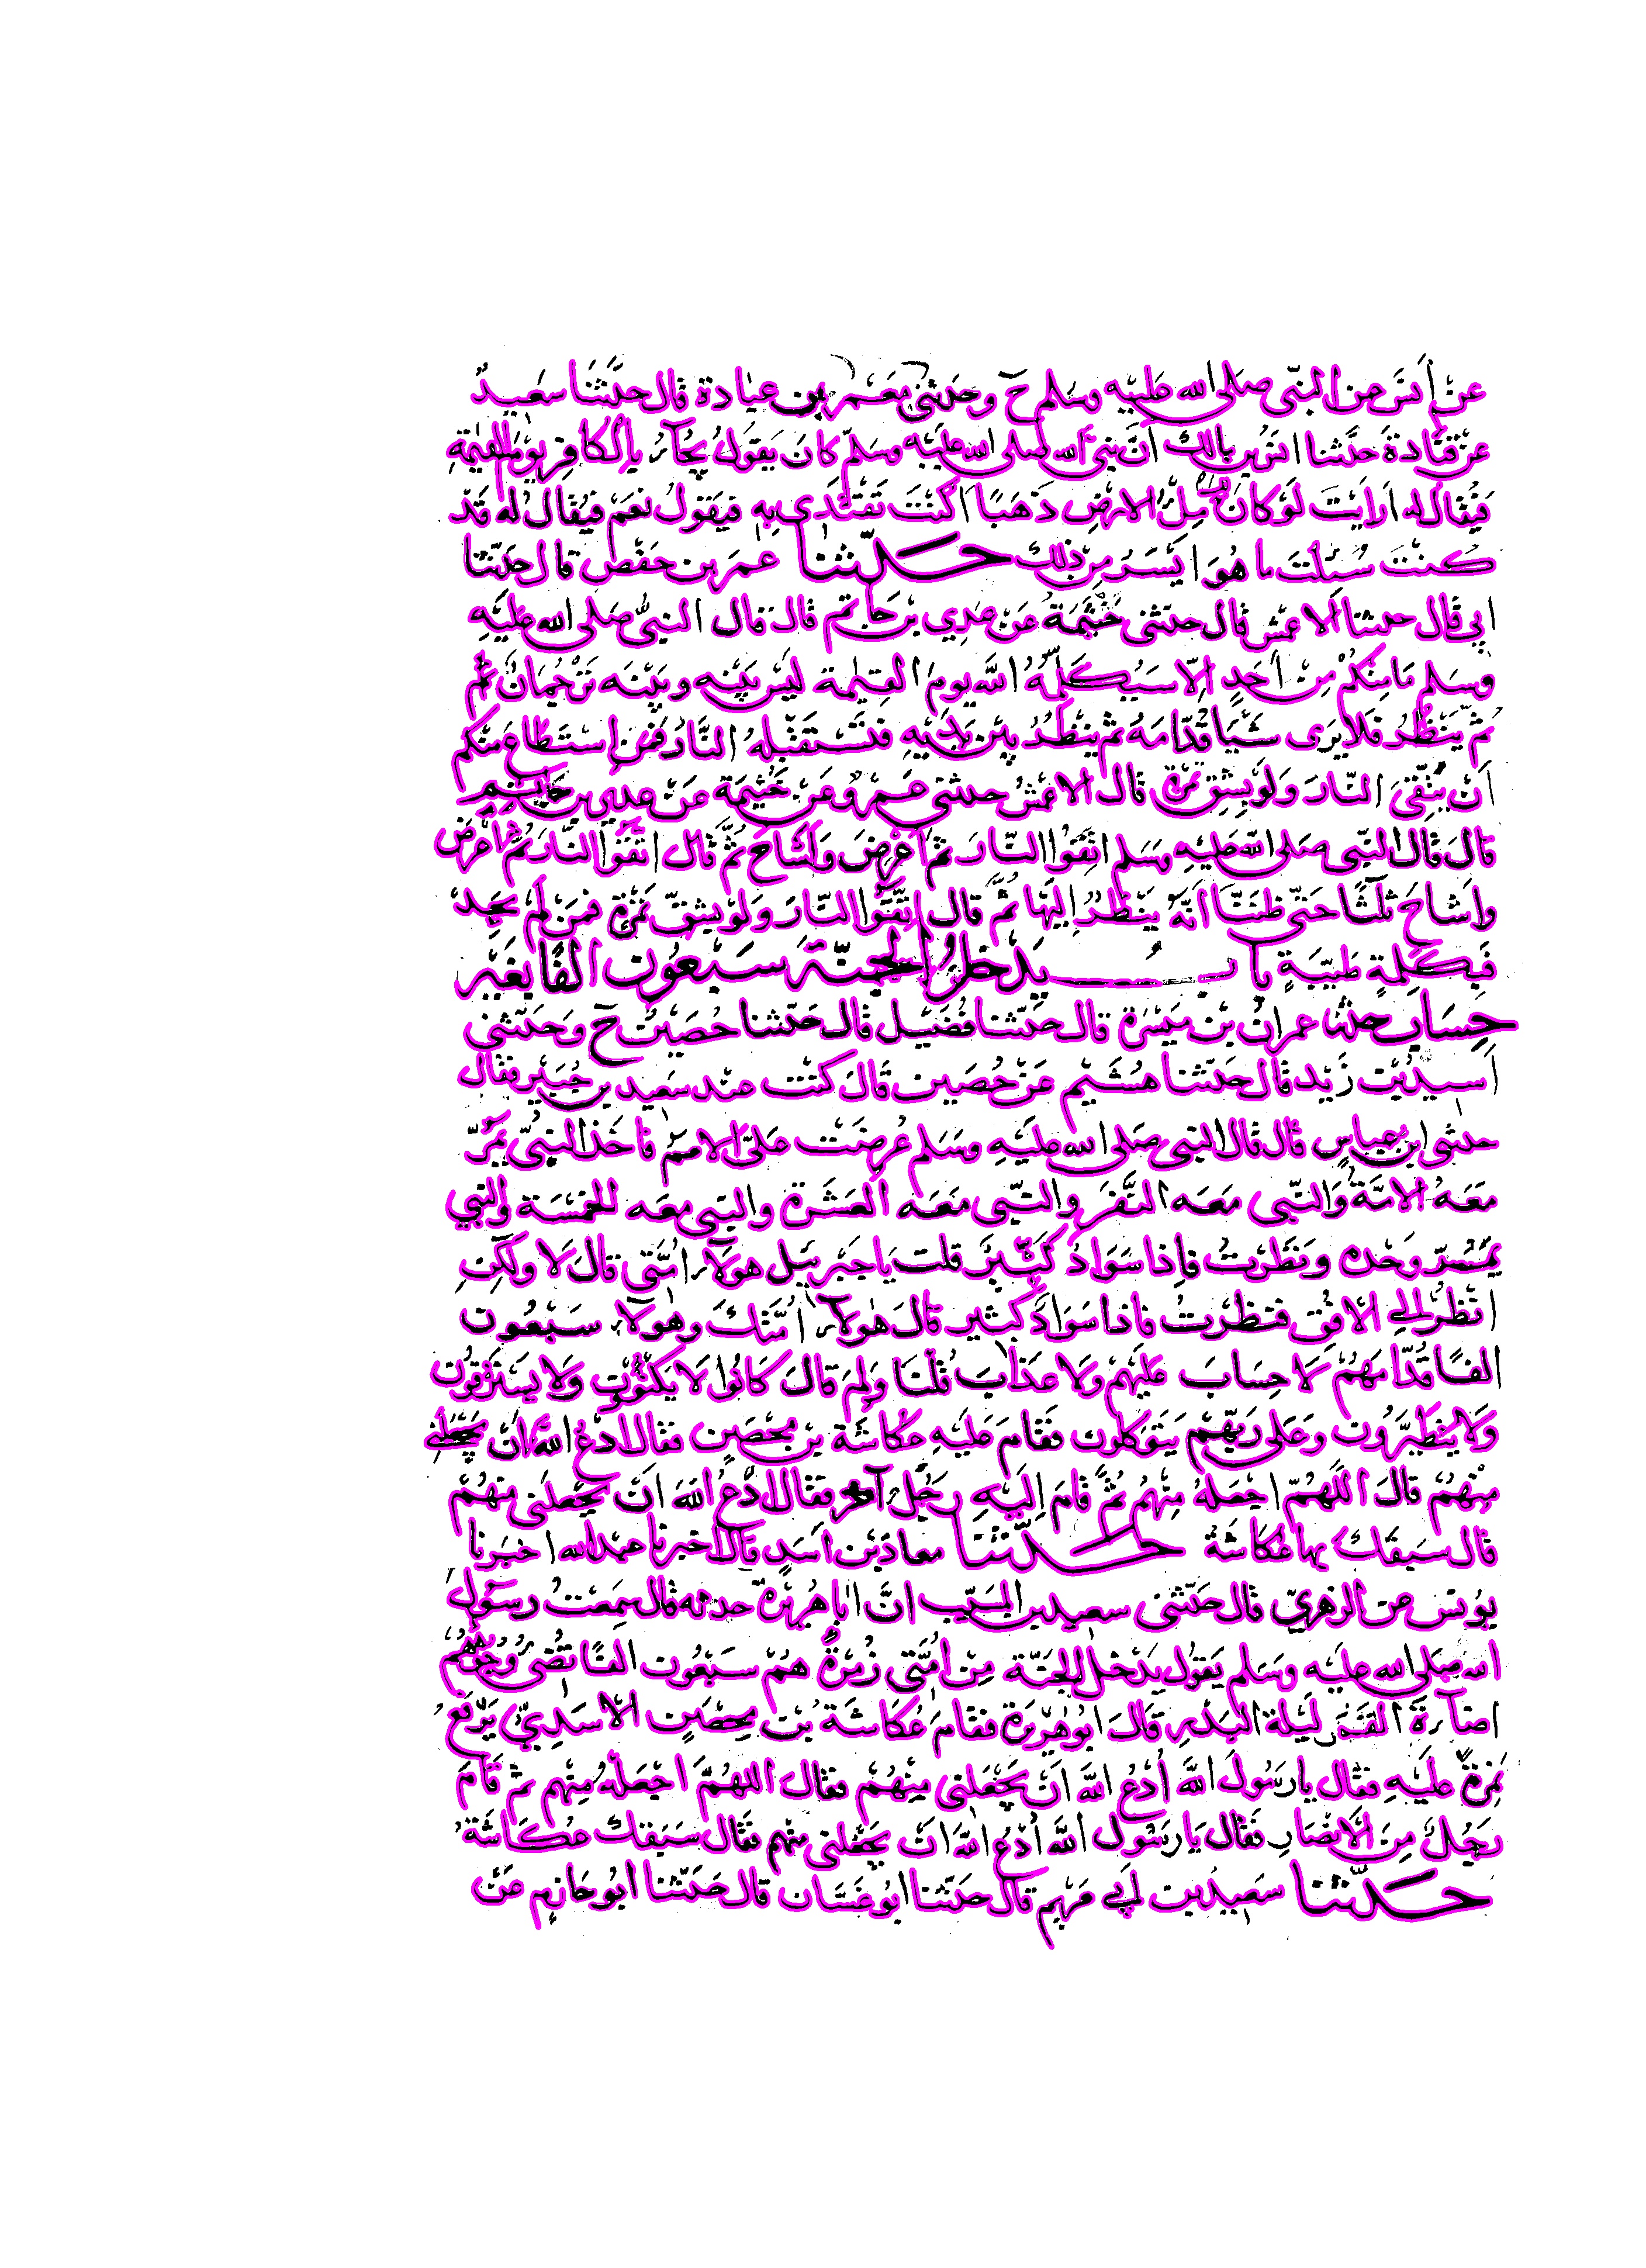 عَنْ أَنَسٍ عن النبّي صلى الله عليه وسلم ح وحدثني مَعْمَر بن عبادة قال حدَّثنَا سَعِيدٌ
عن قتَادةَ حدَّثنا انس بن مالك انَّ نبيَّ الله صلى الله عليه وسلم كانَ يَقولُ يُجَآءُ بِالكافِرِ يومَ القيٰمة
فيُقال له اَرايتَ لَوْ كانَ لك مِلءُ الارضِ ذَهَبًا اكنتَ تَفْتَدى به فيَقولُ نعم فيُقالُ له قَدْ
كنتَ سُئلتَ ما هوَ ايسَرُ مِن ذلك حدّثنا عمر بن حفص قال حدّثنا
ابي قال حدثنا الاعمش قال حدثنى خَيْثَمَةُ عَنْ عدِي بن حَاتم قال قال النبىُّ صلى الله عليه
وسلم مَا مِنْكُمْ مِنْ أحَدٍ اِلّا سَيُكَلِّمُهُ اللهُ يومَ القيٰمة ليس بينه وبَيْنَه تَرْجُمَانٌ ثم
ثم يَنْظُرُ فَلا يَرى شيْأً قُدّامَهُ ثم ينظُرُ بين يديْهِ فتَسْتَقْبِلُه النَّارُ فَمن استطاع منكم
اَنْ يَتّقىَ النّارَ ولَو بِشِقِّ تمرة قال الاعمشُ حدثنى عَمروٌ عَن خَيثمة عَن عدي بن حاتم
قالَ قالَ النبّى صلى الله عليه وَسَلم اتّقُوا النّارَ ثم أَعْرضَ وَأَشَاحَ ثمّ قال اتّقُوا النّارَ ثم اعْرَضَ
واَشاحَ ثلٰثًا حَتّى ظَنَنّا اَنّهُ يَنْظُرُ إليْهَا ثمّ قال اتّقوا النّارَ وَلَوْ بشقّ تمرَةٍ فمَن لم يجد
فَبِكَلِمةٍ طيّبَةٍ بابُ يَدخلُ الجنةَ سَبعون الفًا بغير
حِسَاب حدثنا عمرانُ بن مَيسَرة قال حدّثنا فُضَيل قال حدّثنا حُصَينٌ ح وَحَدّثنى
أَسِيدُ بن زَيد قال حدّثنا هُشَيم عَن حُصَين قالَ كنتُ عندَ سَعيد بن جُبَير فقال
حدثنى ابن عباسٍ قال قال النبى صلى الله عليه وسَلم عُرِضَت عَلىَّ الامم فأخذ النبىُّ يَمُرّ
مَعَهُ الامّةُ وَالنّبى مَعَه النَّفَر والنّبى مَعَه العَشَرة والنبى معَه الخمْسَة والنبي
يَمُرّ وَحْدَه ونَظَرْتُ فإذا سَوَادٌ كَثيرٌ قلت يا جَبرئيل هولآء امّتى قال لا ولكنِ
انظُر إلى الافُق فنظرتُ فاذا سَوَادٌ كثير قالَ هٰولآء امّتكَ وهولآء سَبعُون
الفًا قُدّامَهُم لَا حِسَابَ عَليْهم ولا عَذَابَ قُلْنَا ولمَ قالَ كَانُوا لا يَكتَوُونَ ولَا يَسْترْقونَ
وَلا يَتَطيَّرُون وَعَلى رَبّهِمْ يَتَوكلون فقَام عَليه عُكاشَة بن مِحْصَنٍ فقال ادعُ اللهَ ان يَجْعلَنى
مِنْهُم قالَ اللَّهُمَّ اجْعَلهُ مِنْهم ثمَّ قامَ اِليه رَجُل آخر فقال ادْعُ اللهَ اَنْ يَجعلَنى منهُمْ
قال سبقك بها عُكاشة حدّثنا معاذ بن اسَدٍ قال اخبرنا عبد الله اخبَرنا
يونس عن الزهريّ قال حَدّثنى سعيد بن المسَيّب انَّ ابا هريرة حدثه قال سَمعتُ رسول
الله صَلى الله عليه وسَلم يَقول يَدْخل الجنّة مِن امّتى زُمْرَةٌ هُم سَبْعُون الفًا تُضىُ وُجُوهُهُم
اضآءةَ القَمَر لَيلة البَدر قال ابو هريرة فقامَ عُكاشة بن مِحصَن الاَسَدِيّ يَرْفَعُ
نمرةً عليهِ فقال يا رَسُولَ اللهَ اُدْعُ اللهَ اَنْ يَجْعَلنى مِنْهُم فقال اللهُمّ اجْعَلهُ مِنْهم ثم قَامَ
رَجُلٌ مِنَ الاَنصَار فقال يا رَسُولَ الله اُدْعُ اللهَ اَن يَجْعلنى منهم فقال سَبَقك عُكاشَة
حدّثنا سعيد بن ابي مَريم قال حدّثنا ابو غَسّان قال حَدّثنا ابو حَازم عَنْ